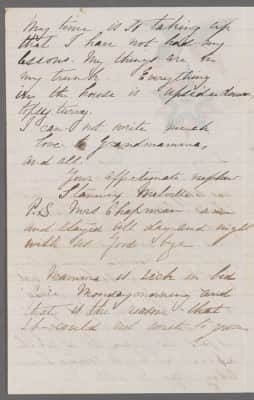 My time is so taking up
that I have not had my
lessons. My things are in
my trunk. Everything
in the house is upside down
topsy turvy.
I can not write much
love to Grandmamma,
and all.
Your affectionate nephew
Stanny Melville
P.S. Mrs Chapman came
and stayed all day and night
with us good bye
Mamma is sick in bed
Monday morning and
that is the reason that
could not write to you